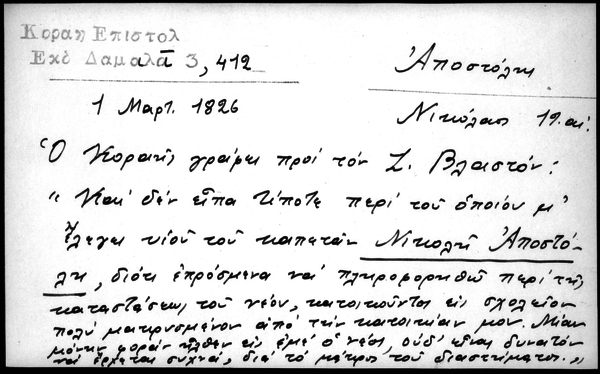 Κοραη Επιστολ
Εκδ Δαμαλᾶ 3, 412
Ἀποστόλη
1 Μαρτ. 1826
Νικόλαος 19. αἰ.
Ὁ Κοραῆς γράφει πρὸς τὸν Ζ. Βλαστόν:
"Καὶ δέν εἶπα τίποτε περί τοῦ ὁποίου μ'
ἔλεγες υἱοῦ τοῦ καπετάν Νικολῆ Ἀποστό-
λη, διότι ἐπρόσμενα νά πληροφορηθῶ περί τῆς
καταστάσεως τοῦ νέου, κατοικοῦντος εἰς σχολεῖον
πολύ μακρυσμένον ἀπό τήν κατοικίαν μου. Μίαν
μόνην φοράν ἦλθεν εἰς ἐμέ ὁ νέος, οὐδ' εἶναι δυνατόν
νά ἔρχεται συχνά, διά τό μῆκος τοῦ διαστήματος."